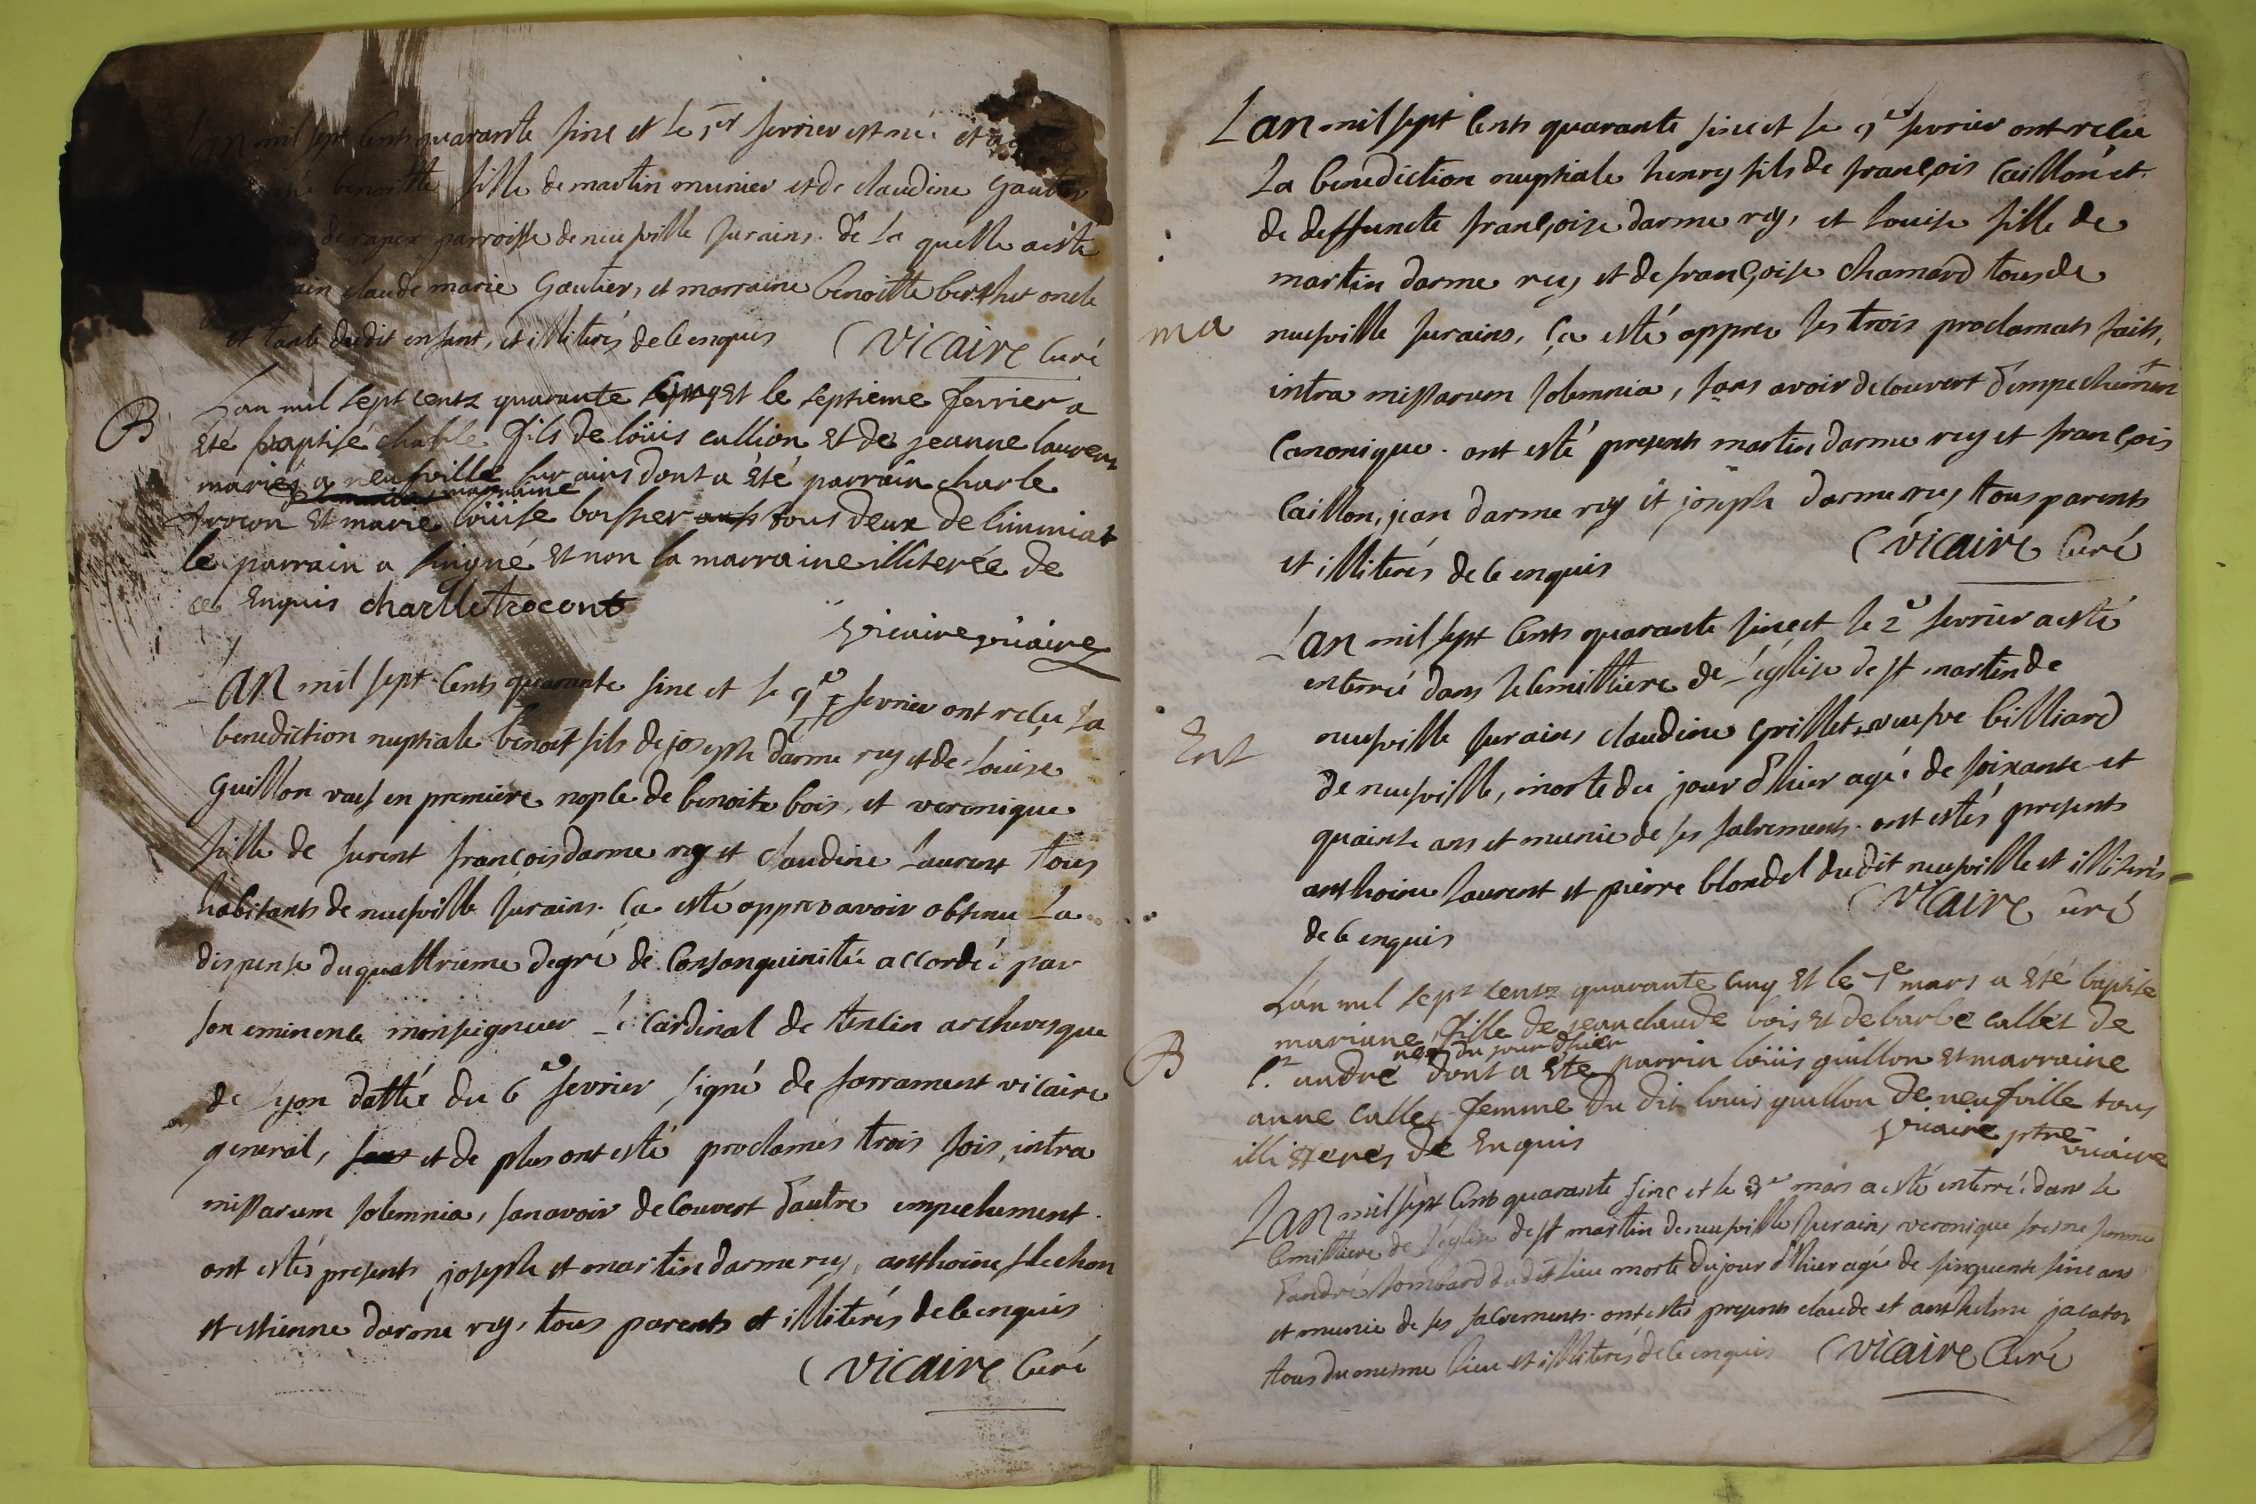 Lan mil sept Cents quarante sinc et le 5er fevrier est née et a
benoitte fille de martin munier et de claudine Gautier
parroisse de neufville surains. de la quelle a esté
claude marie Gautier, et marraine benoitte berthet oncle
et tante dudit enfant, et illiterés de ce enquis
Vicaire Curé
B
L'an mil sept cents quarante cinq Et le septieme fevrier a
Eté baptisé charle fils de loüis callion Et de jeanne laurent
mariés a neufville sur ains dont a Eté parrain charle
marraine
trocon Et marie loüise boissier tous deux de simmiat
le parrain a singné Et non la marraine illiterée de
ce Enquis charlle trocont
Vicaire vicaire
Lan mil sept Cents quarante sinc et le 9e fevrier ont reçu La
benediction nuptiale benoit fils de joseph darme rey et de Louise
Guillon vaef en premiere nopce de benoite bois, et veronique
fille de furent françois darme rey et claudine Laurent tous
habitants de neufville surains. Ca esté appres avoir obtenu La
dispense du quattrieme degré de Consanguinitée accordée par
son eminence monseigneur Le Cardinal de tencin archevesque
de Lyon dattée du 6e fevrier signé de sarrament vicaire
general, et de plus ont esté proclamés trois fois, intra
missarum solemnia, san avoir decouvert d'autre empechement.
ont estés presents joseph et martin darme rey, anthoine flechon
et estienne darme rey, tous parents et illiterés de ce enquis
Vicaire Curé
Lan mil sept Cents quarante sinc et le 9e fevrier ont reçu
La benediction nuptiale henry fils de françois Caillon et
de deffuncte françoise darme rey, et louise fille de
martin darme rey et de françoise chamard tous de
ma
neufville surains, ça esté appres les trois proclamats faits,
intra missarum solemnia, sans avoir decouvert d'empechement
Canonique. ont esté presents martin darme rey et françois
Caillon, jean darme rey et joseph darme rey tous parents
et illiterés de ce enquis
Vicaire Curé
Lan mil sept Cents quarante sinc et le 2e fevrier a esté
enterrée dans le Cemittiere de L'eglise de st martin de
Ent
neufville surains claudine Grillet veufve billiard
de neufville, morte du jour d'hier agée de soixante et
quainze ans et munie de ses sacrements. ont estés presents
anthoine Laurent et pierre blondel dudit neufville et illiterés
de ce enquis
Vicaire Curé
L'an mil sept cents quarante cinq Et le 1e mars a Eté baptisé
B
mariane fille de jean claude bois Et de barbe callet de
née du jour d'hier
st andré dont a Eté parrin loüis guillon Et marraine
anne callet femme du dit louis guillon de neufville tous
illitterés de Enquis
Vicaire ptre vicaire
Lan mil sept Cents quarante sinc et le mars a esté enterrée dans le
Cemittiere de L'eglise de st martin de neufville surains veronique fresne femme
d'andré Lombard du dit lieu morte du jour d'hier agée de sinquente sinc ans
et munie de ses sacrements. ont estés presents claude et anthelme jacaton
tous du mesme lieu et illiterés de ce enquis
Vicaire Curé